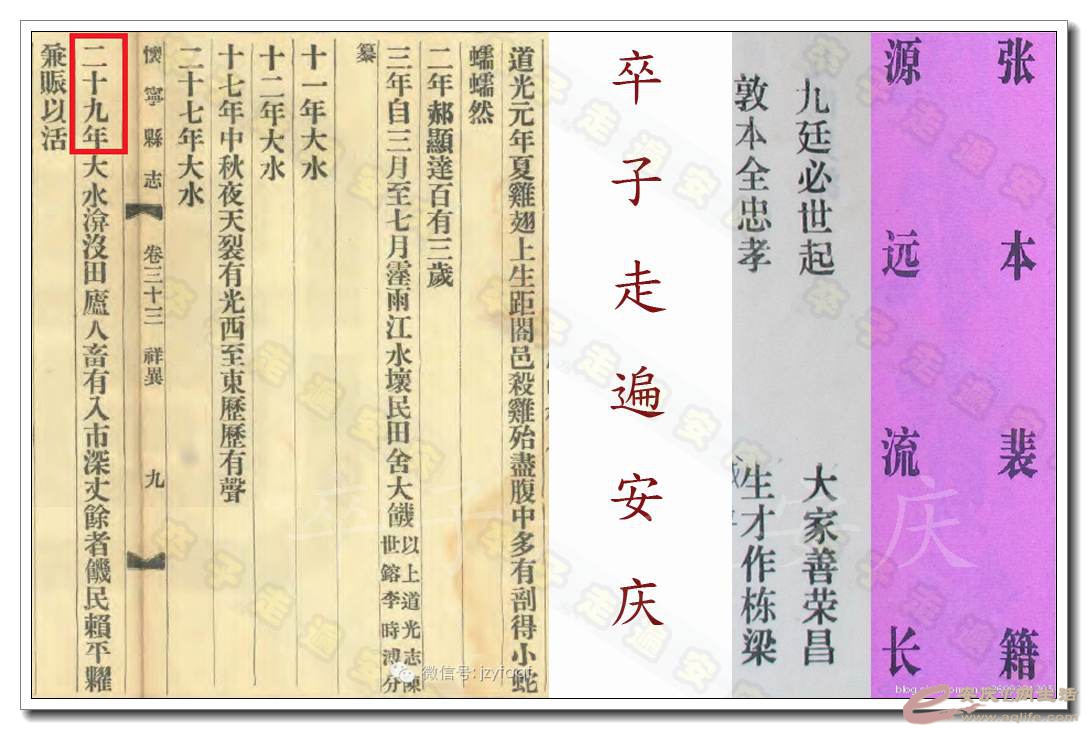 张本裴籍
源远流长
九廷必世起 大家善荣昌
敦本全忠孝 生才作栋梁
卒子走遍安庆
道光元年夏雞翅上生距閤邑殺雞殆盡腹中多有刮得小蛇
蠕蠕然
二年郝顯達百有三歲
三年自三月至七月霪雨江水壞民田舍大饑
以上道光志陳
世鎔李時溥分
纂
十一年大水
十二年大水
十七年中秋夜天裂有光西至東歷歷有聲
二十七年大水
懷寧縣志 卷三十三 祥異 九
二十九年大水渰沒田廬人畜有入市深丈餘者饑民賴平糶
兼賑以活
微信号: jzyfoot
安庆E网生活
www.aqlife.com